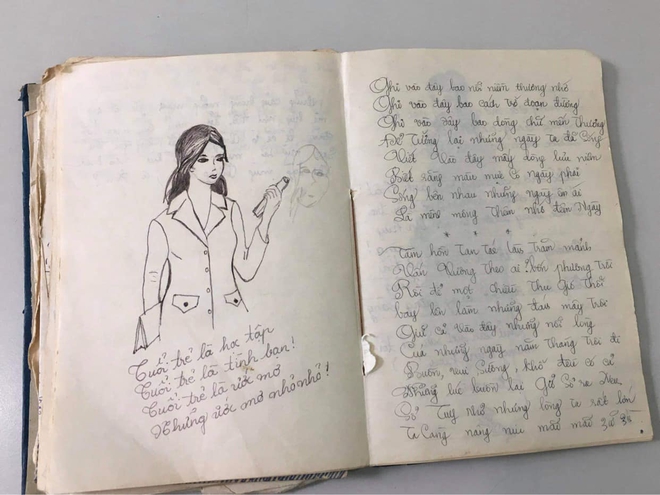 Tuổi trẻ là học tập
Tuổi trẻ là tình bạn!
Tuổi trẻ là ước mơ
Những ước mơ nho nhỏ!
Ghi vào đây bao nỗi niềm thương nhớ
Ghi vào đây bao cách trở đoạn đường
Ghi vào đây bao dòng chữ mến thương
Để tưởng lại những ngày ta đã sống
Viết vào đây mấy dòng lưu niệm
Biết rằng mai một có ngày phai
Sống bên nhau những ngày êm ái
Là mênh mông thêm nhớ đến Ngày
* * *
Tâm hồn tan tác trăm mảnh
Vấn Vương theo ai bốn phương trời
Rồi để một chiều thu gió thổi
bay lên làm những đám mây trôi
Quả là vào đây những nỗi lòng
Của những ngày năm tháng trôi đi
Buồn, vui Sướng, khổ đều có cả
Những lúc buồn lại Giở ra
Sổ Tuy nhỏ nhưng lòng ta rất lớn
Ta Càng nâng niu mãi mãi